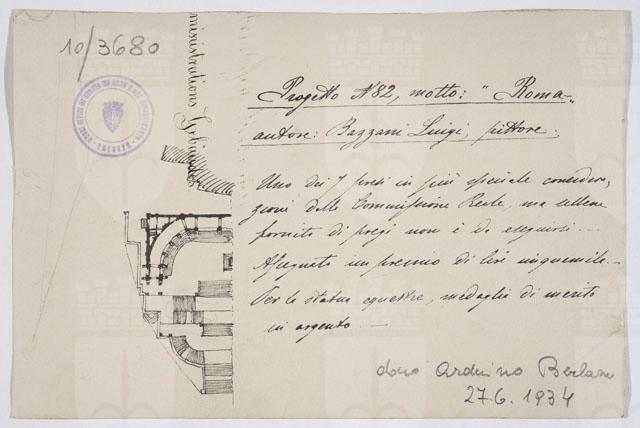 10/3680
ministrations Gebäudes
Progetto N 82, motto: "Roma"
autore: Bazzani Luigi, pittore.
Uno dei 7 presi in più speciale considera,
zioni dalla Commissione Reale, ma sebbene
fornito di pregi non è da eseguirsi. —
Assegnato un premio di lire cinquemila. —
Per la statua equestre, medaglia di merito
in argento —
donò Arduino Berlam
27.6.1934